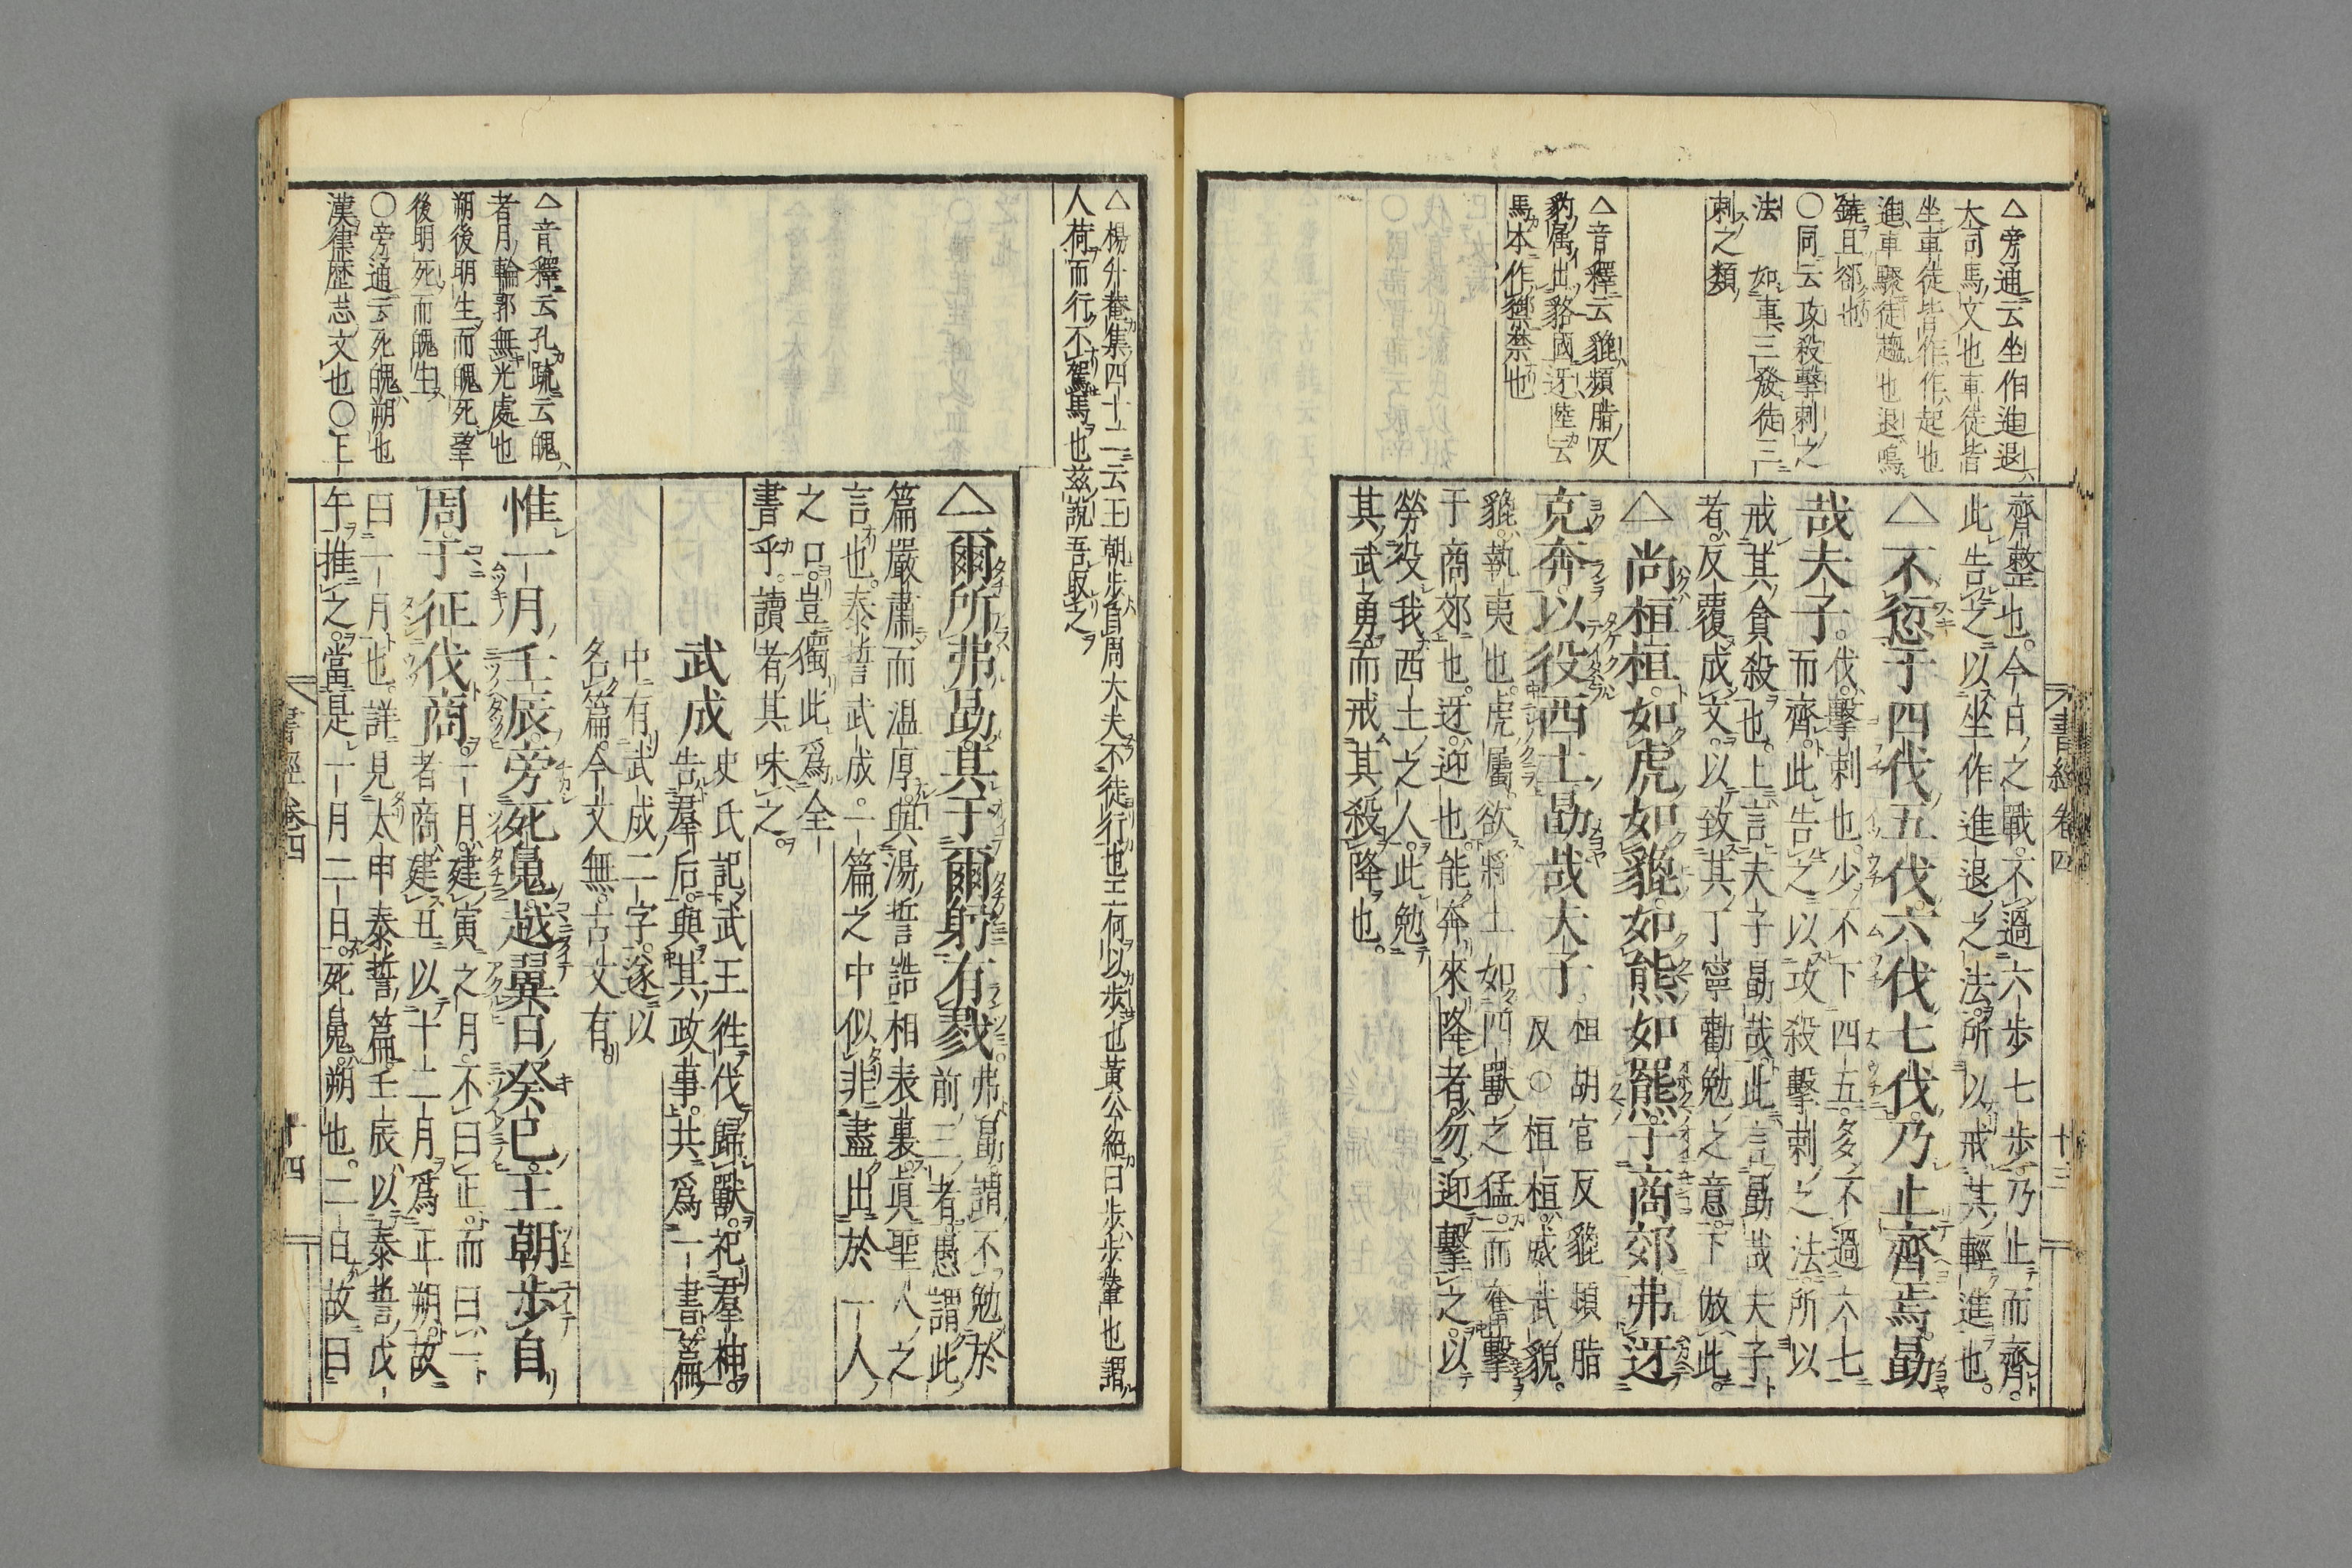 △旁通云坐作進退
大司馬文也車徒皆
坐車徒皆作作起也
進車驟徒趨也退鳴
鐃且郤也
○同云攻殺擊刺之
法 如車三發徒三
刺之類
△音釋云貔頻脂反
豹属出貉國迓陸云
馬本作禦禁也
齊整也。今日之戰。不過六步七步。乃止而齊。
此告之以坐作進退之法。所以戒其輕進也。
△不愆于四伐五伐六伐七伐。乃止齊焉。勗
哉夫子。
伐。擊刺也。少不下四五。多不過六七
而齊。此告之以攻殺擊刺之法。所以
戒其貪殺也。上言夫子勗哉。此言勗哉夫子
者。反覆成文。以致其丁寧勸勉之意。下倣此。
△尚桓桓。如虎如貔。如熊如羆。于商郊。弗迓
克奔。以役西土。勗哉夫子。
桓胡官反貔頻脂
反○桓桓。威武貌。
貔。執夷也。虎屬。欲將士如四獸之猛。而奮擊
于商郊也。迓。迎也。能奔來降者。勿迎擊之。以
勞役我西土之人。此勉
其武勇。而戒其殺降也。
書經卷四
十三
△楊升菴集四十二云王朝步自周大夫不徒行也王何以步也黃公紹曰步步輦也謂
人荷而行不駕馬也茲說吾取之
△音釋云孔疏云魄
者月輪郭無光處也
朔後明生而魄死望
後明死而魄生
○旁通云死魄朔也
漢律歷志文也○王
△爾所弗勗。其于爾躬有戮。
弗勗。謂不勉於
前三者。愚謂此
篇嚴肅而温厚。與湯誓誥相表裏。眞聖人之
言也。泰誓武成。一篇之中似非盡出於一人
之口。豈獨此爲全
書乎。讀者其味之。
武成
史氏記武王徃伐歸獸。祀羣神。
告羣后。與其政事。共爲一書。篇
中有武成二字。遂以
名篇。今文無。古文有。
惟一月壬辰。旁死魄。越翼日癸巳。王朝步自
周。于征伐商。
一月。建寅之月。不曰正。而曰一
者。商建丑。以十二月爲正朔。故
曰一月也。詳見太甲泰誓篇。壬辰。以泰誓戊
午推之。當是一月二日。死魄。朔也。二日。故曰
書經卷四
十四